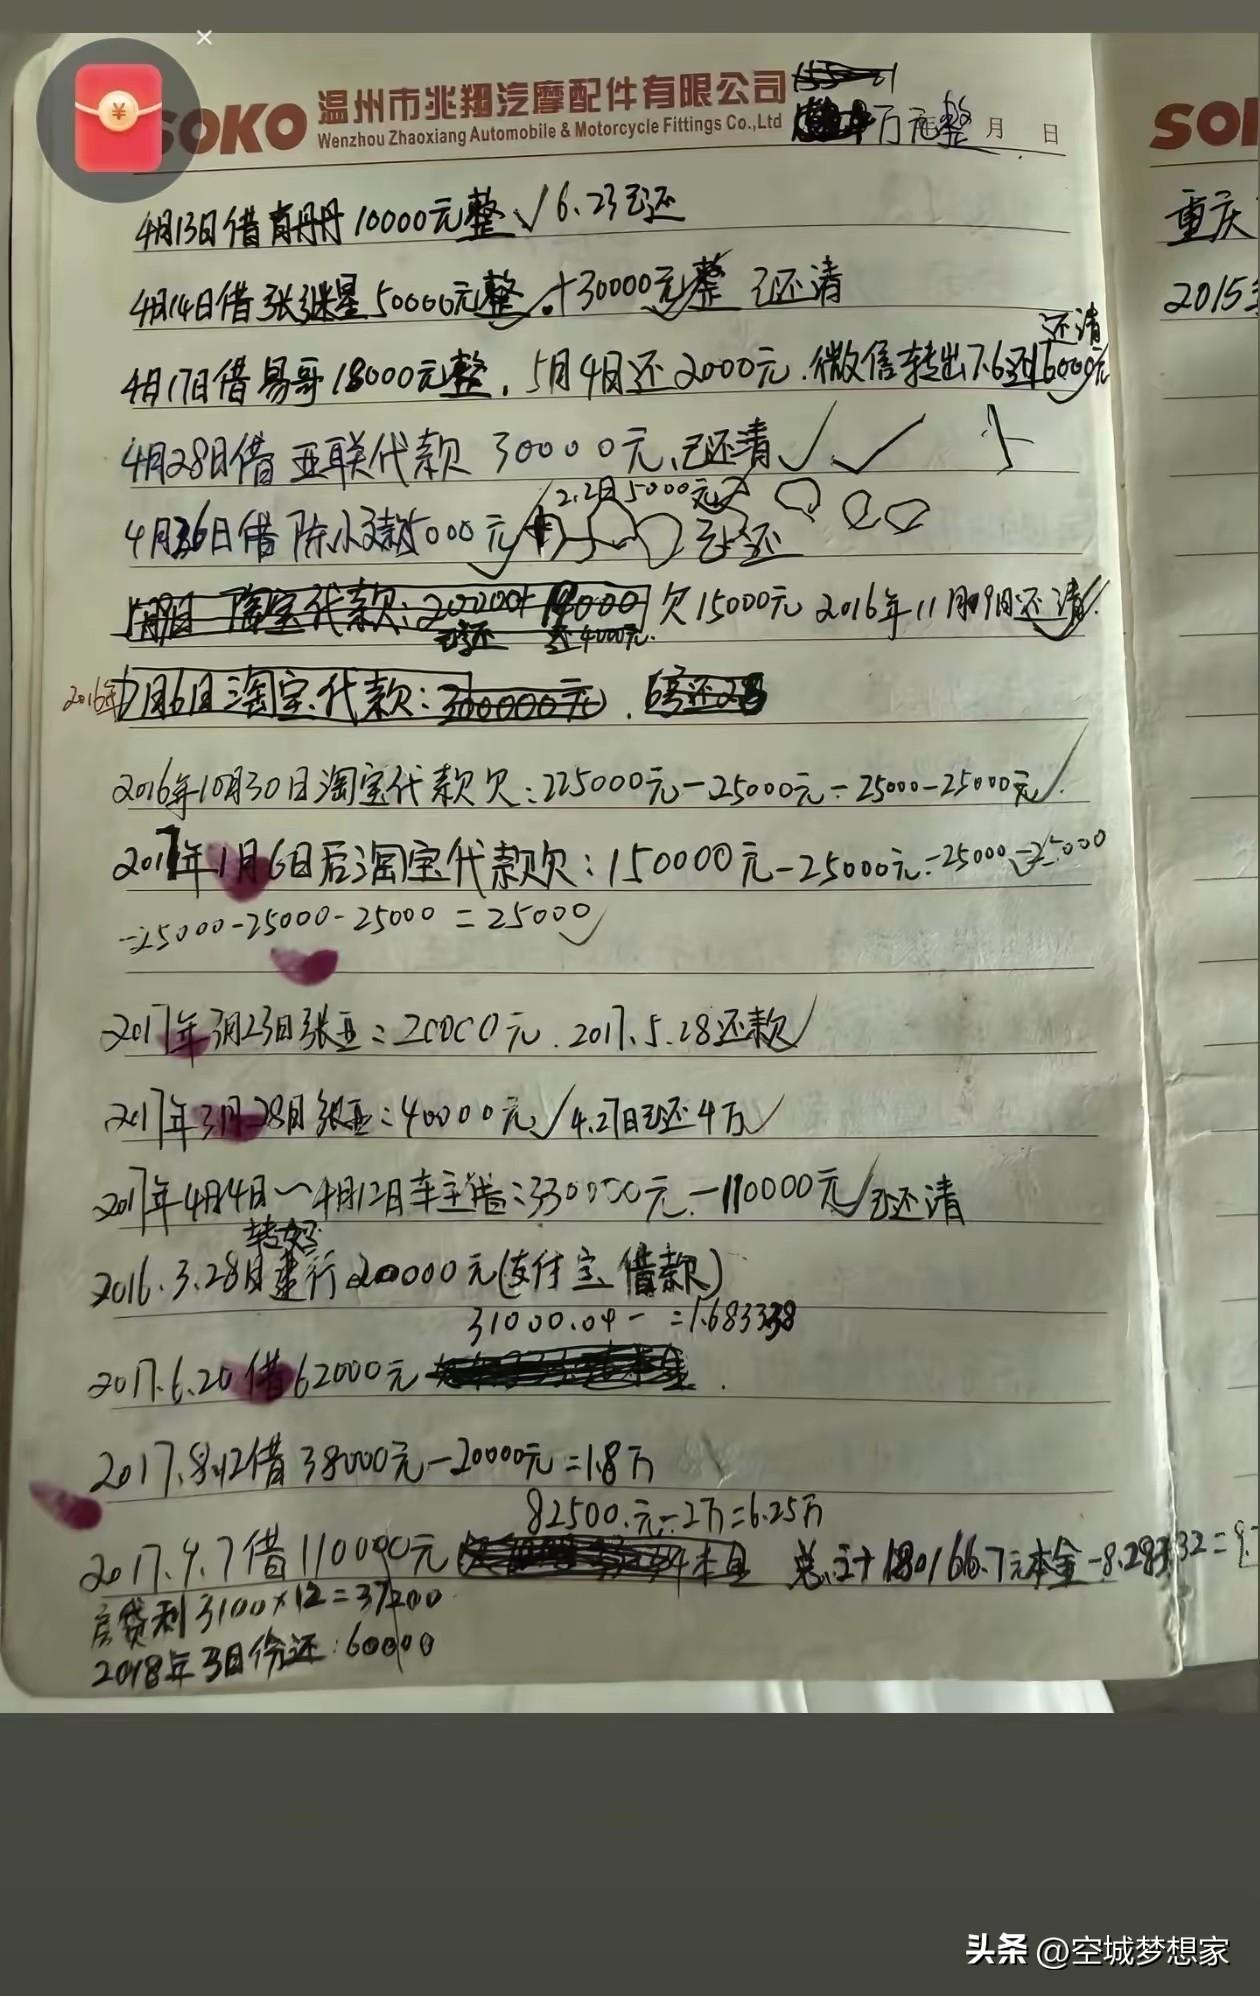 SOKO 温州市兆翔汽摩配件有限公司
Wenzhou Zhaoxiang Automobile & Motorcycle Fittings Co.,Ltd
万元整 月 日
SO
重庆
2015
4月13日借 10000元整 6.23已还
4月14日借张继星50000元整 +30000元整 已还清
还清
4月17日借易哥18000元整, 5月4日还2000元.微信转出 7.6还16000元
4月28日借亚联代款 30000元、已还清
2.2日5000元
4月 日借陈小 5000元 已还
淘宝代款: 欠15000元 2016年11月09日还清
已还 4000元.
2016年7月6日淘宝代款:300000元.
2016年10月30日淘宝代款欠:225000元-25000元-25000-25000元
2017年1月6日后淘宝代款欠:150000元-25000元-25000-25000
-25000-25000-25000=25000
2017年3月23日张亚:20000元.2017.5.28还款
2017年3月28日张亚:40000元 4.27日已还4万
2017年4月4日~4月12日车主借:330000元-110000元 已还清
2016.3.28日建行200000元(支付宝借款)
31000.04- =1.683338
2017.6.20借62000元
2017.8.12借38000元-20000元=1.8万
82500.元-2万=6.25万
2017.9.7借110000元 本息 总计+180166.7元本金-8.28332=
房贷利3100×12=37200
2018年3月份还:60000
头条 @空城梦想家